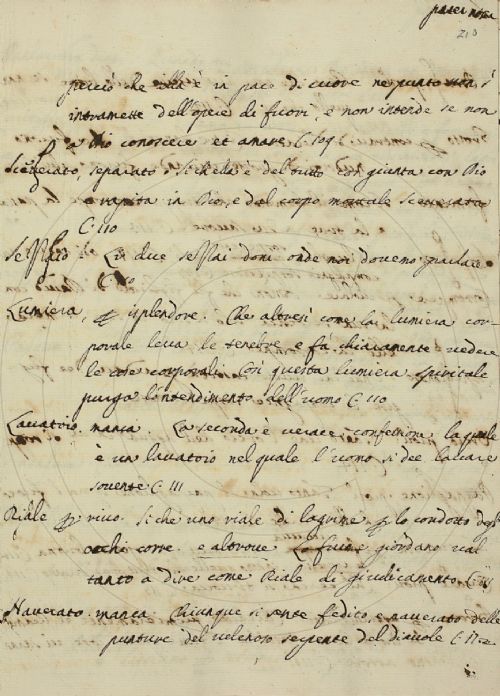 pater noster
210
perciò che ella è in pace di cuore ne punto s'
intramette dell'opere di fuori, e non intende se non
a Dio conoscere et amare C. 109
Sceverato, separato. Si ch'ella è del tutto congiunta con Dio
e rapita in Dio, e dal corpo mortale sceverata
C. 110
Le due doni onde noi dovemo parlare
C. 110
Lumiera, p isplendore. Che altresì come la lumiera cor-
porale leva le tenebre e fà chiaramente vedere
le cose corporali. Così questa lumiera spiritale
purga l'intendimento dell'uomo C. 110
Lavatoio. manca. La seconda è verace confessione, la quale
è un lavatoio nel quale l'uomo si dee lavare
sovente C. 111
Riale p rivo. Si che uno riale di lagrime p lo condotto degl'
occhi corre. e altrove Lo fiume giordano val
tanto a dire come Riale di giudicamento C. 111
Naverato. manca. Chiunque si sente fedito, e naverato delle
punture del velenoso serpente del diavole C. 112